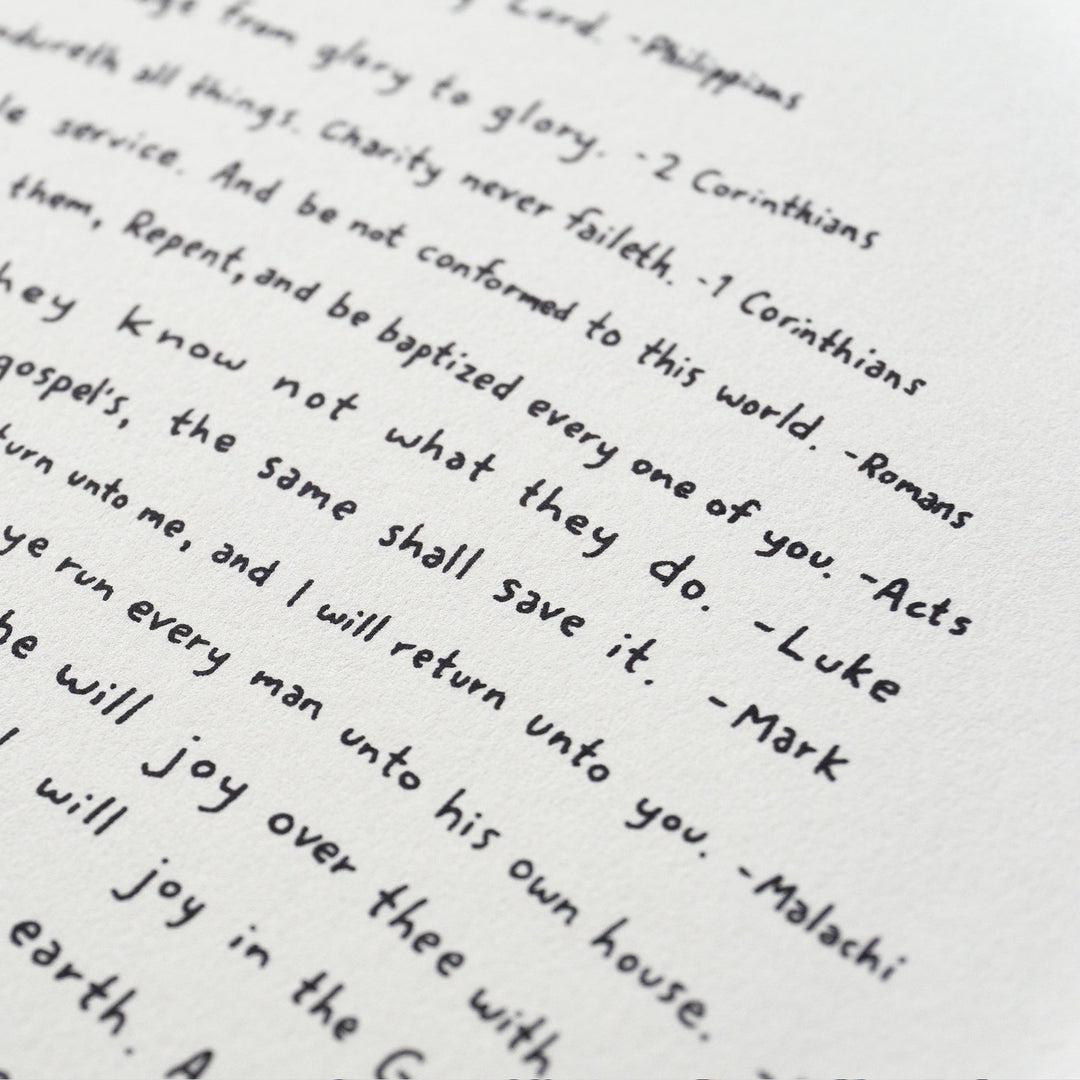 Lord. -Philippians
from glory to glory. -2 Corinthians
all things. Charity never faileth. -1 Corinthians
service. And be not conformed to this world. -Romans
them, Repent, and be baptized every one of you. -Acts
hey know not what they do. -Luke
gospel's, the same shall save it. -Mark
turn unto me, and I will return unto you. -Malachi
ye run every man unto his own house.
he will joy over thee with
will joy in the G
earth. A